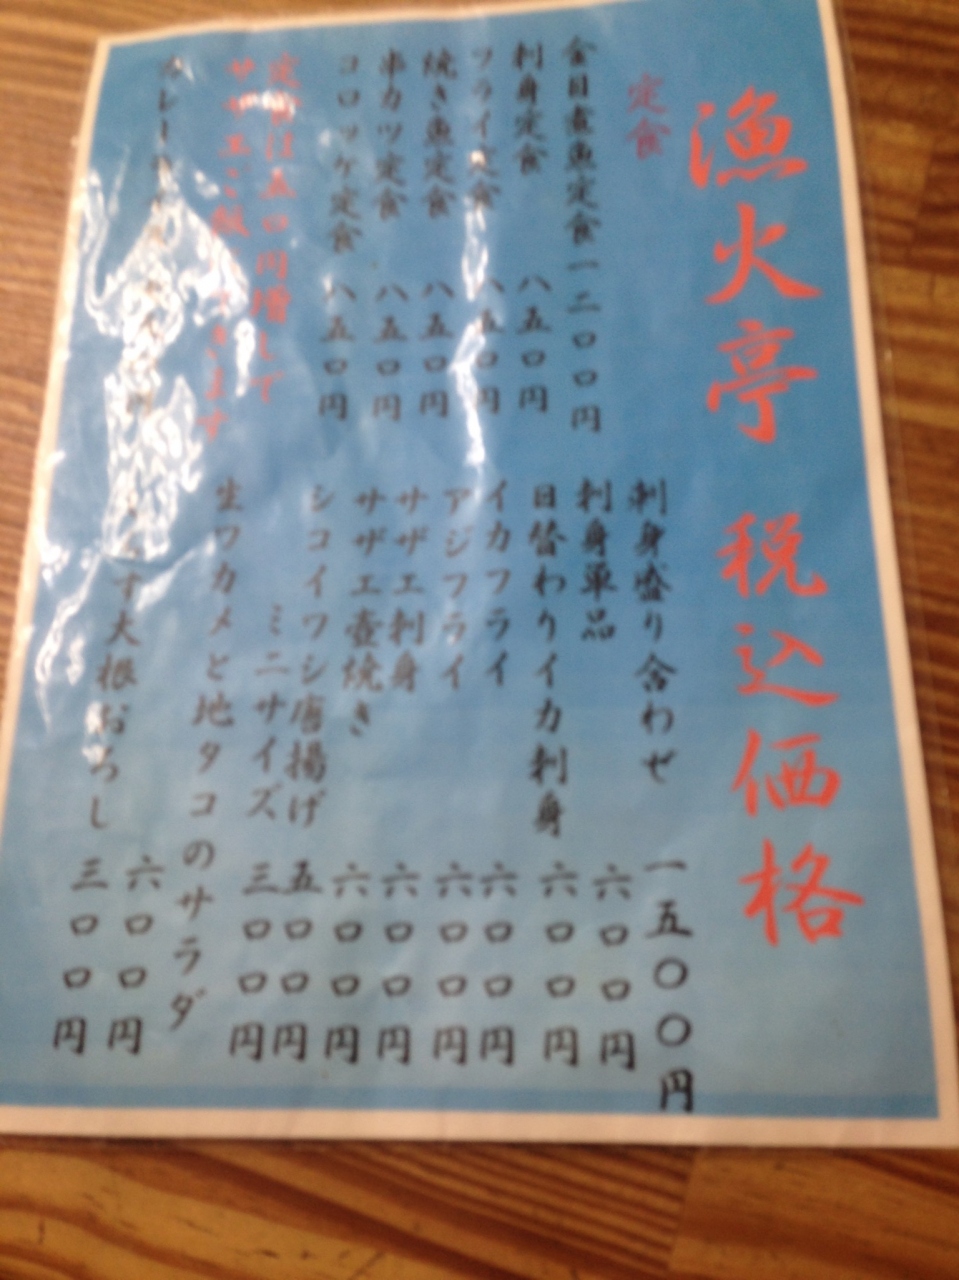 漁火亭 税込価格
定食
金目煮魚定食 一二〇〇円
刺身定食 八五〇円
フライ定食 八五〇円
焼き魚定食 八五〇円
串カツ定食 八五〇円
コロッケ定食 八五〇円
定食は五〇円増しで
サザエご飯 きます
カレー
刺身盛り合わせ 一五〇〇円
刺身単品 六〇〇円
日替わりイカ刺身 六〇〇円
イカフライ 六〇〇円
アジフライ 六〇〇円
サザエ刺身 六〇〇円
サザエ壺焼き 六〇〇円
シコイワシ唐揚げ 五〇〇円
ミニサイズ 三〇〇円
生ワカメと地タコのサラダ
六〇〇円
らす大根おろし 三〇〇円